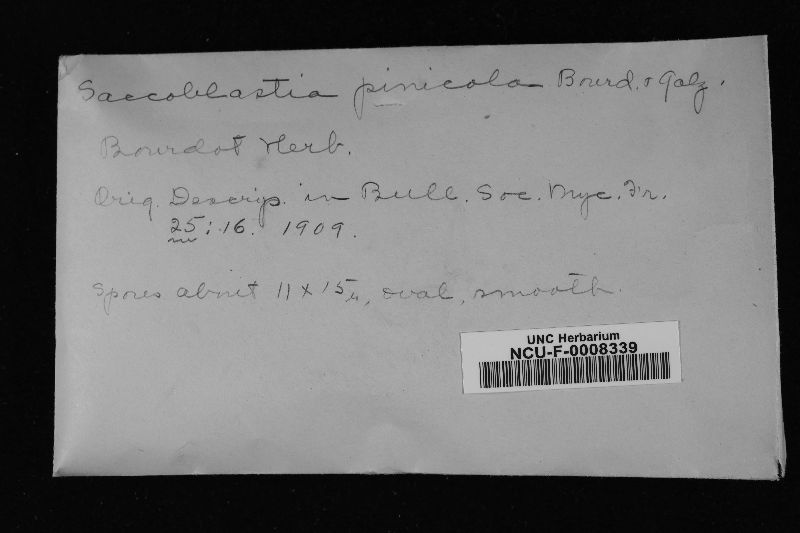 Saccoblastia pinicola Bourd. & Galz.
Bourdot Herb.
Orig. Descrip. in Bull. Soc. Myc. Fr.
25:16. 1909.
Spores about 11 x 15µ, oval, smooth.
UNC Herbarium
NCU-F-0008339